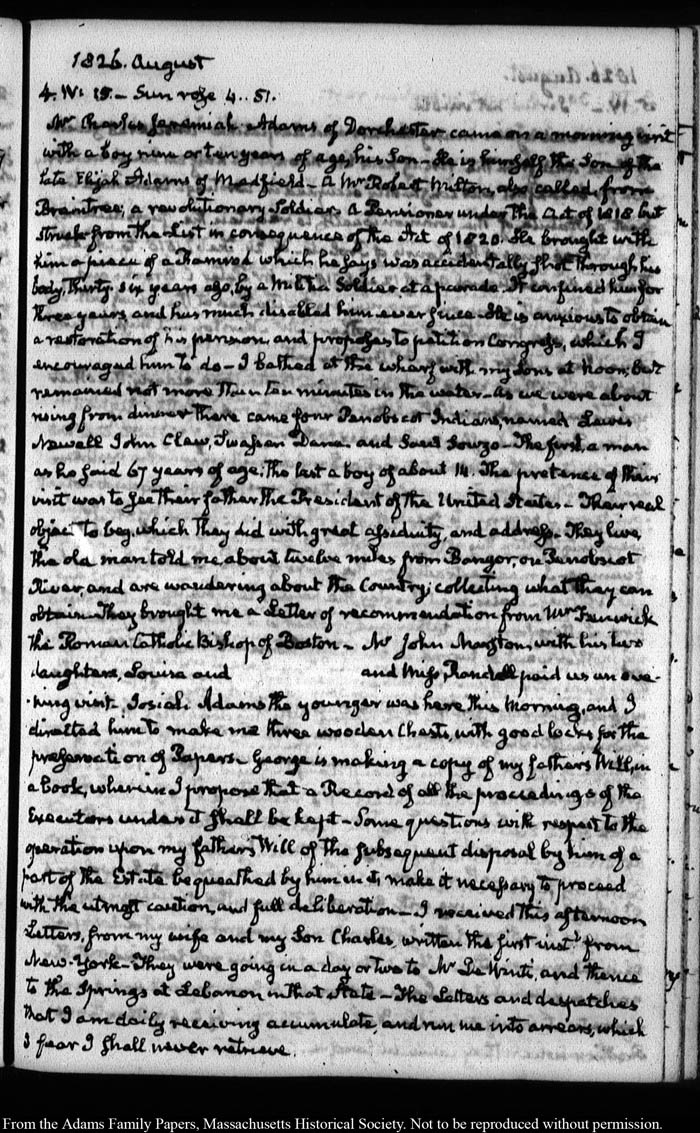 1826. August
4. IV: 15.- Sun rose 4..51.
Mr Charles Jeremiah Adams of Dorchester came on a morning visit
with a boy nine or ten years of age, his Son- He is himself the Son of the
late Elijah Adams of Medfield- A Mr Robert Milton, also called from
Braintree, a revolutionary Soldier. A Pensioner under the Act of 1818 but
struck from the List in consequence of the Act of 1820. He brought with
him a piece of a Ramrod which he says was accidentally shot through his
body, thirty six years ago, by a Militia Soldier at a parade. It confined him for
three years, and has much disabled him ever since- He is anxious to obtain
a restoration of his pension, and proposes to petition Congress, which I
encouraged him to do- I bathed at the wharf with my Sons at Noon; but
remained not more than ten minutes in the water- As we were about
rising from dinner there came four Penobscot Indians, named Lewis
Newell John Claw, Dana and - The first, a man
as he said 67 years of age; the last a boy of about 14. The pretence of their
visit was to see their father the President of the United States- Their real
object to beg, which they did with great assiduity, and address- They live,
the old man told me about twelve miles from Bangor, on Penobscot
River, and are wandering about the Country; collecting what they can
obtain- They brought me a Letter of recommendation from Mr Fenwick
the Roman Catholic Bishop of Boston- Mr John Marston, with his two
daughters, Louisa and and Miss Randell paid us an eve-
-ning visit. Josiah Adams the younger was here this Morning, and I
directed him to make me three wooden Chests, with good locks for the
preservation of Papers- George is making a copy of my father's Will, in
a book, wherein I propose that a Record of all the proceedings of the
Executors under it shall be kept- Some questions with respect to the
operation upon my father's Will of the subsequent disposal by him of a
part of the Estate bequeathed by him in it, make it necessary to proceed
with the utmost caution, and full deliberation- I received this afternoon
Letters, from my wife and my Son Charles, written the first instt from
New-York- They were going in a day or two to Mr De Wint's, and thence
to the Springs at Lebanon in that State- The Letters and despatches
that I am daily receiving accumulate, and run me into arrears, which
I fear I shall never retrieve.
From the Adams Family Papers, Massachusetts Historical Society. Not to be reproduced without permission.